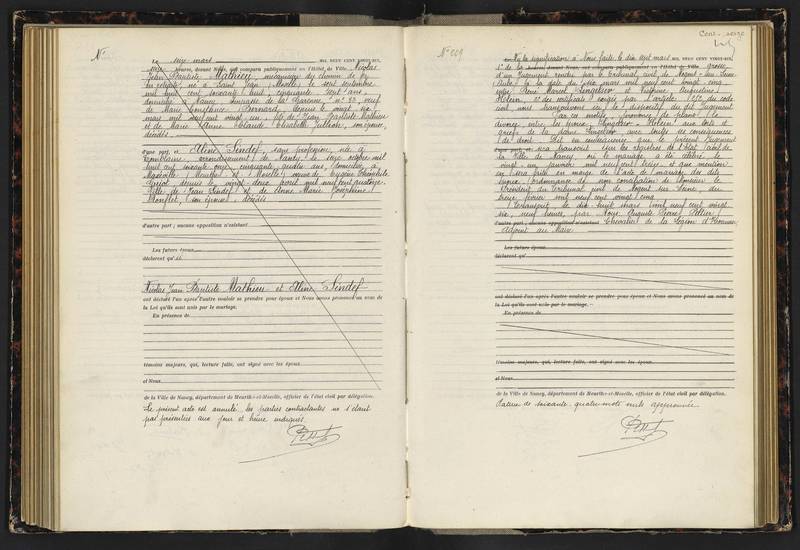 N°
Le six mars mil neuf cent vingt-six,
heures, devant Nous, ont comparu publiquement en l'Hôtel de Ville Nicolas
Jean Baptiste Mathieu, mécanicien du chemin de fer
en retraite né à Saint Jean (Moselle) le sept septembre
mil huit cent soixante huit, cinquante sept ans,
domicilié à Nancy, de la Garenne, n° 93, veuf
de Marie Bernard, depuis le vingt six
mars mil neuf cent vingt un, fils de Jean Baptiste Mathieu
et de Marie Anne Elisabeth son épouse,
décédés
d'une part, et Aline Sindef, sans profession, née à
Tomblaine, arrondissement de Nancy, le seize octobre mil
huit cent soixante onze, cinquante quatre ans, domiciliée à
Maxéville (Meurthe et Moselle) veuve de Eugène
depuis le vingt deux avril mil neuf cent quatorze,
fille de Jean Sindef et de Anne Marie Joséphine
son épouse, décédés
d'autre part ; aucune opposition n'existant
Les futurs époux
déclarent qu'il
Nicolas Jean Baptiste Mathieu et Aline Sindef
ont déclaré l'un après l'autre vouloir se prendre pour époux et Nous avons prononcé au nom de
la Loi qu'ils sont unis par le mariage.
En présence de
témoins majeurs, qui, lecture faite, ont signé avec les époux
et Nous
de la Ville de Nancy, département de Meurthe-et-Moselle, officier de l'état civil par délégation.
Le présent acte est annulé, les parties contractantes ne s'étant
pas présentées aux jour et heure indiqués.
Cent-seize
N° 209
Vu la signification à Nous faite le dix sept mars mil neuf cent vingt-six,
heures, devant Nous, ont comparu publiquement en l'Hôtel de Ville grosse
d'un Jugement rendu par le tribunal civil de Nogent-sur-Seine
Aube à la date du six mai mil neuf cent vingt cinq
entre René Marcel et Victorine Augustine
Helein, et des certificats exigés par l'article 252 du code
civil, nous transcrivons ici le dispositif dudit Jugement
Par ces motifs, prononce de plano le
divorce entre les époux - Helein aux torts et
griefs de la dame avec toutes ses conséquences
de droit. Dit en conséquence que le présent Jugement
sera transcrit sur les registres de l'Etat civil de
la Ville de Nancy, où le mariage a été célébré le
vingt janvier mil neuf cent treize, et que mention
en sera faite en marge de l'acte de mariage des dits
époux. Ordonnance de non conciliation de Monsieur le
Président du tribunal civil de Nogent sur Seine, du
treize février mil neuf cent vingt cinq.
Transcrit le dix-huit mars mil neuf cent vingt
six, neuf heures, par Nous Auguste Pierre Peltier
d'autre part ; aucune opposition n'existant Chevalier de la Légion d'Honneur,
Adjoint au Maire.
Les futurs époux
déclarent qu'
ont déclaré l'un après l'autre vouloir se prendre pour époux et Nous avons prononcé au nom de
la Loi qu'ils sont unis par le mariage.
En présence de
témoins majeurs, qui, lecture faite, ont signé avec les époux
et Nous
de la Ville de Nancy, département de Meurthe-et-Moselle, officier de l'état civil par délégation.
Rature de soixante quatre mots nuls approuvée